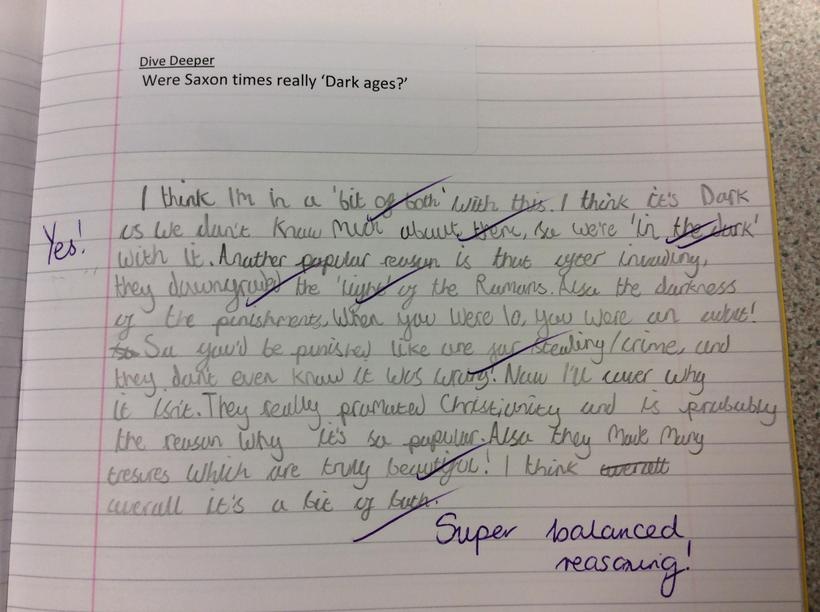 Dive Deeper
Were Saxon times really ‘Dark ages?’
I think I'm in a 'bit of both' with this. I think it's Dark
Yes!
as we don't know much about them, so we're 'in the dark'
with it. Another popular reason is that after invading,
they downgraded the 'light' of the Romans. Also the darkness
of the punishments. When you were 10, you were an adult!
So you'd be punished like one for stealing/crime, and
they don't even know it was wrong! Now I'll cover why
it isn't. They really promoted Christianity and is probably
the reason why it's so popular. Also they made many
tresures which are truly beautiful! I think overall
overall it's a bit of both.
Super balanced
reasoning!